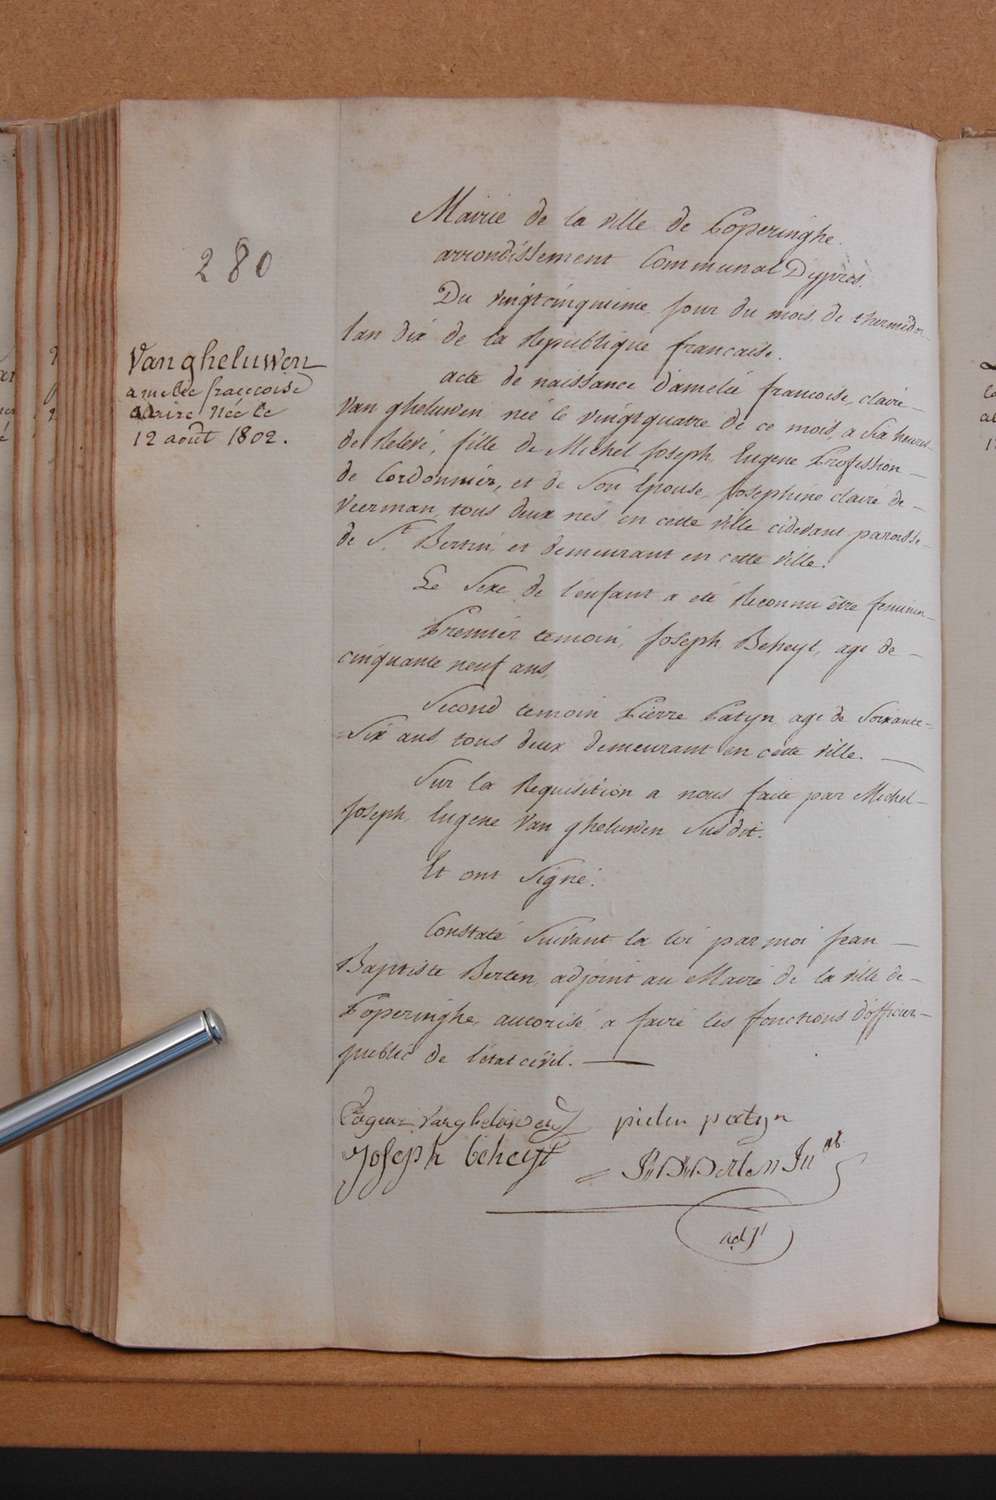 280
Van gheluwen
amelie francoise
claire née le
12 août 1802.
Mairie de la ville de Poperinghe.
arrondissement Communal Dypres.
Du vingtcinquieme jour du mois de thermidor
lan dix de la Republique francaise.
acte de naissance d'amelie francoise claire
Van gheluwen née le vingtquatre de ce mois, a six heures
de relevé, fille de Michel Joseph Eugene Profession
de Cordonnier, et de Son Epouse, Josephine claire de
Veerman, tous deux nés en cette ville cidevant paroisse
de St. Bertin, et demeurant en cette ville.
Le Sexe de l'enfant a été Reconnu être feminin
Premier temoin, Joseph Beheyt, age de
cinquante neuf ans,
Second temoin Pierre Patyn age de Soixante
Six ans tous deux demeurant en cette ville.
Sur la Requisition a nous faite par Michel
Joseph Eugene Van gheluwen Susdit.
Et ont Signé.
Constaté Suivant la loi par moi Jean
Baptiste Berten, adjoint au Maire de la ville de
Poperinghe, autorisé a faire les fonctions d'officier
public de l'état civil.
Eugene Vangheluwen pieter patyn
Joseph beheyt J. B. Berten
adjt